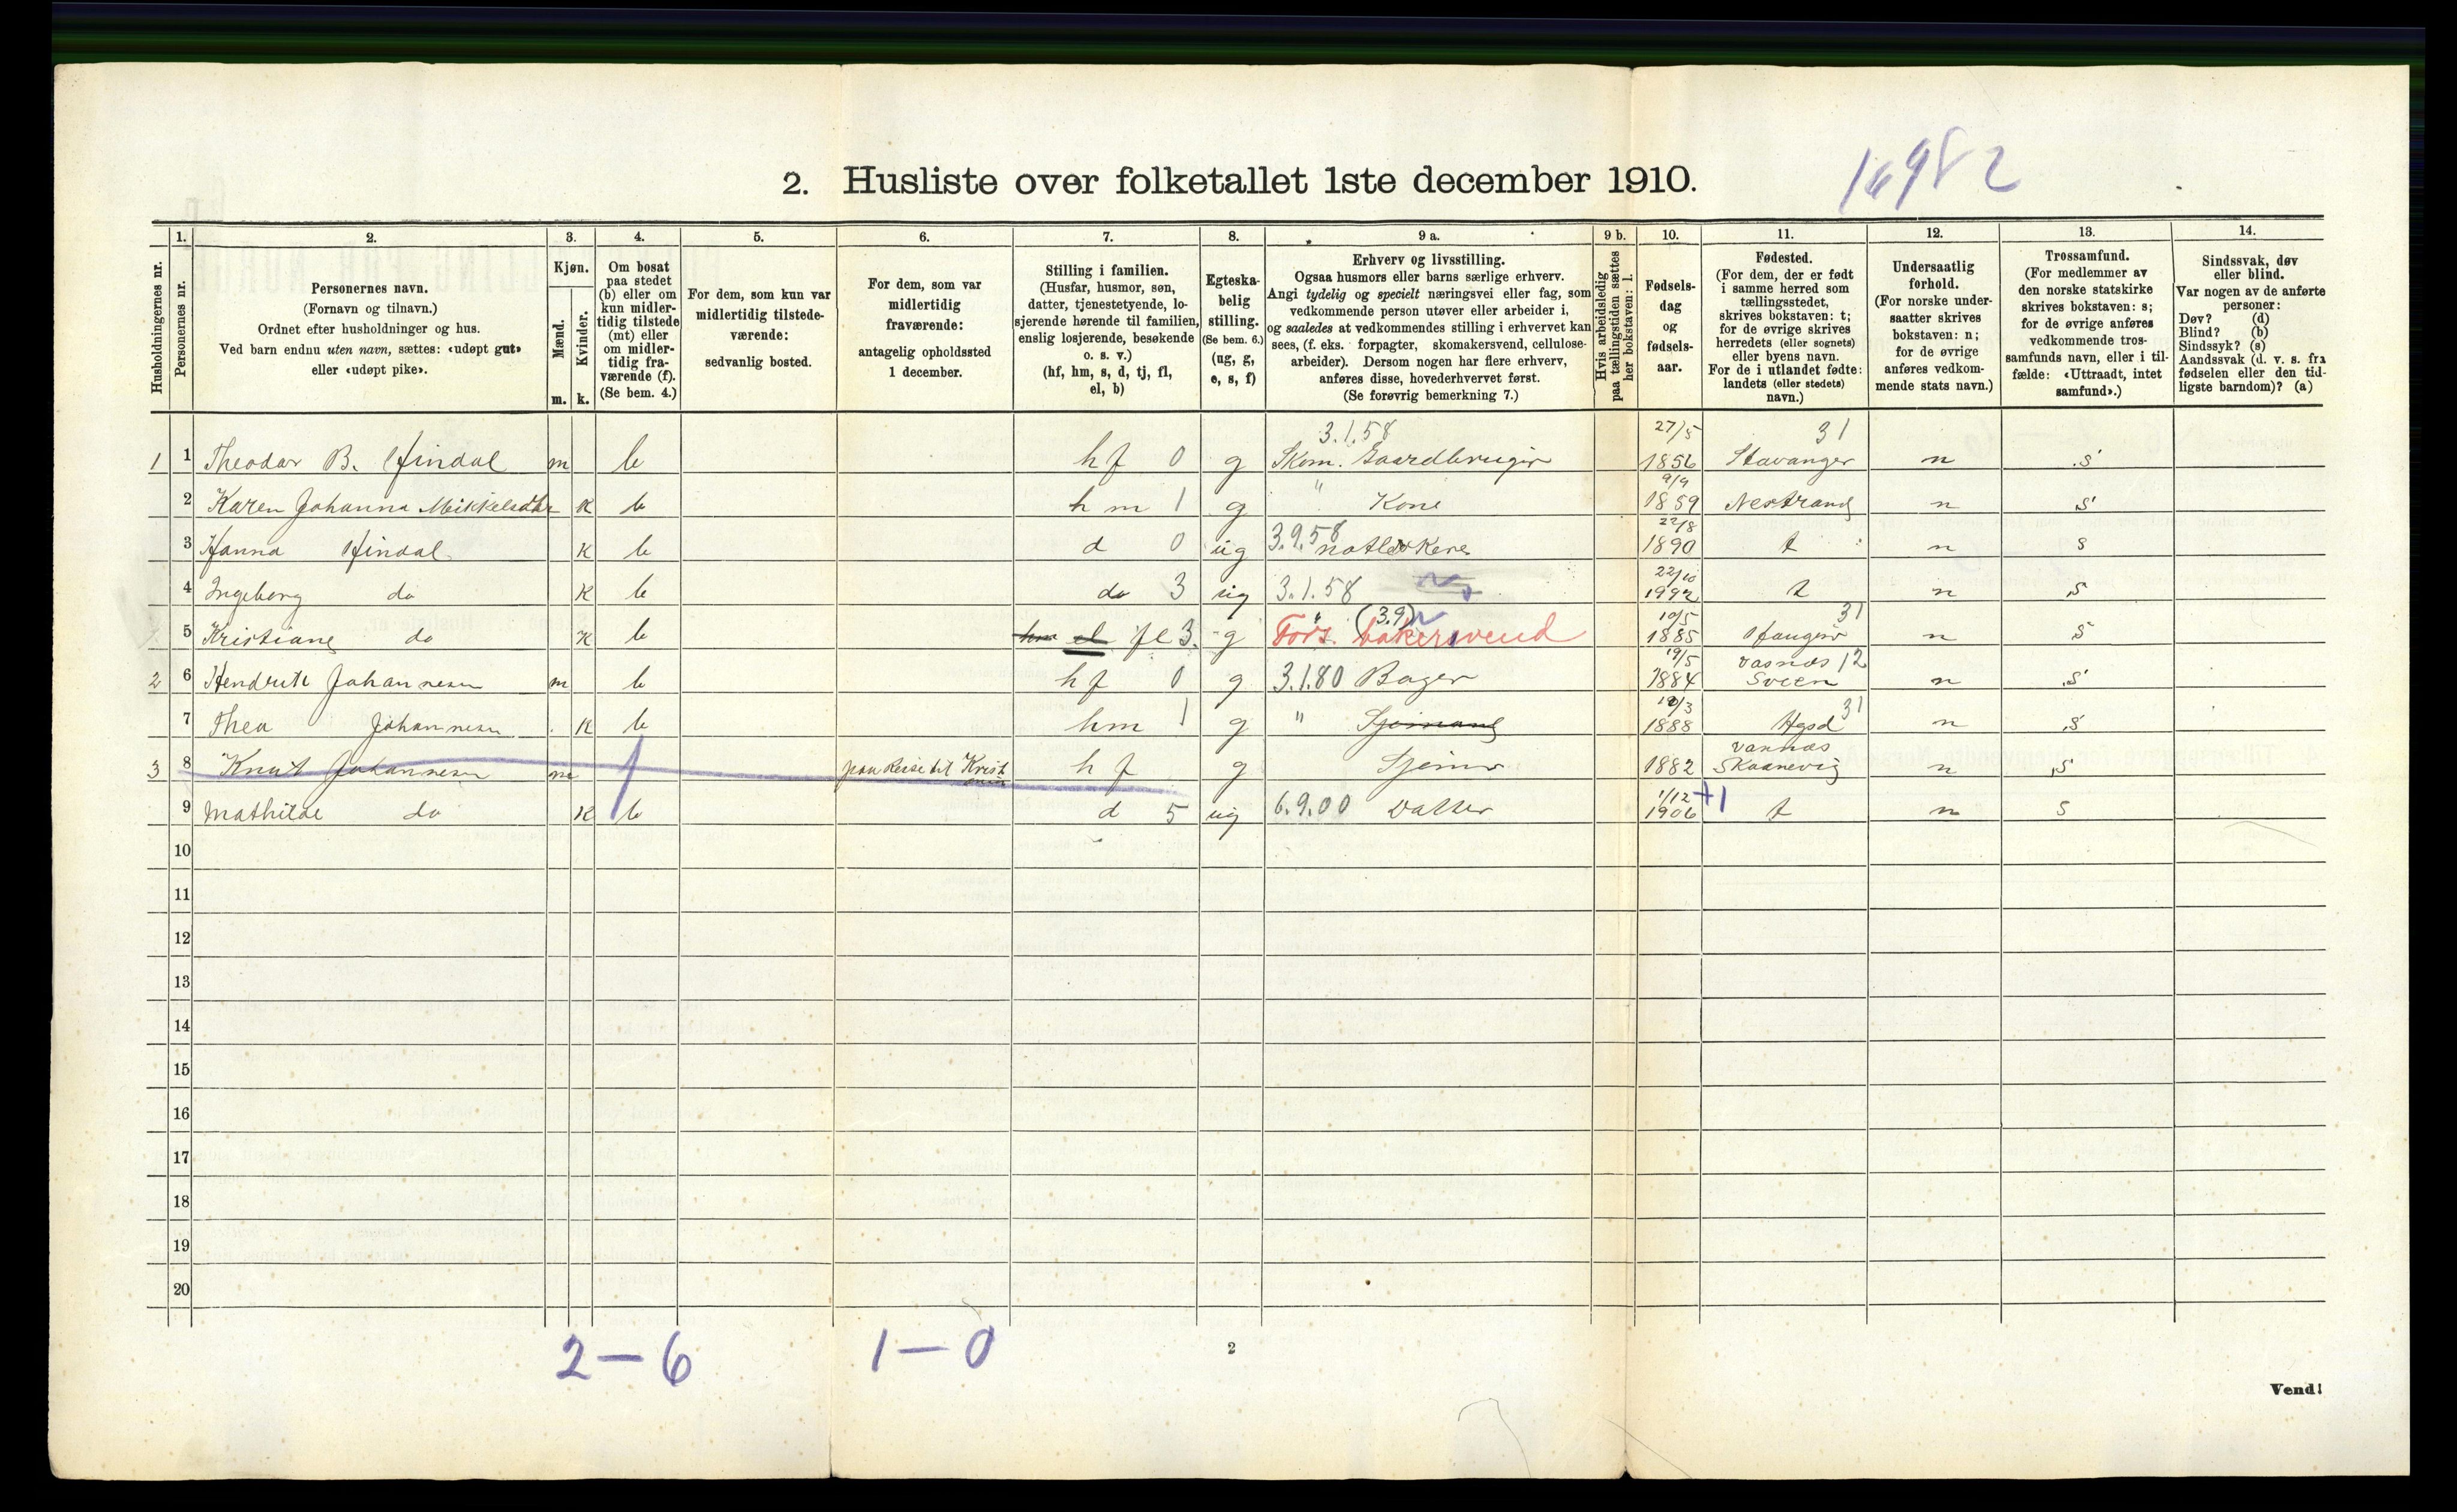 2. Husliste over folketallet 1ste december 1910.
1. 2. 3. 4. 5. 6. 7. 8. 9 a. 9 b. 10. 11. 12. 13. 14.
Husholdningernes nr.
Personernes nr.
Personernes navn.
(Fornavn og tilnavn.)
Ordnet efter husholdninger og hus.
Ved barn endnu uten navn, sættes: «udøpt gut»
eller «udøpt pike».
Kjøn.
Mænd.
Kvinder.
m. k.
Om bosat
paa stedet
(b) eller om
kun midler-
tidig tilstede
(mt) eller
om midler-
tidig fra-
værende (f).
(Se bem. 4.)
For dem, som kun var
midlertidig tilstede-
værende:
sedvanlig bosted.
For dem, som var
midlertidig
fraværende:
antagelig opholdssted
1 december.
Stilling i familien.
(Husfar, husmor, søn,
datter, tjenestetyende, lo-
sjerende hørende til familien,
enslig losjerende, besøkende
o. s. v.)
(hf, hm, s, d, tj, fl,
el, b)
Egteska-
belig
stilling.
(Se bem. 6.)
(ug, g,
e, s, f)
Erhverv og livsstilling.
Ogsaa husmors eller barns særlige erhverv.
Angi tydelig og specielt næringsvei eller fag, som
vedkommende person utøver eller arbeider i,
og saaledes at vedkommendes stilling i erhvervet kan
sees, (f. eks. forpagter, skomakersvend, cellulose-
arbeider). Dersom nogen har flere erhverv,
anføres disse, hovederhvervet først.
(Se forøvrig bemerkning 7.)
Hvis arbeidsledig
paa tællingstiden sættes
her bokstaven: l.
Fødsels-
dag
og
fødsels-
aar.
Fødested.
(For dem, der er født
i samme herred som
tællingsstedet,
skrives bokstaven: t;
for de øvrige skrives
herredets (eller sognets)
eller byens navn.
For de i utlandet fødte:
landets (eller stedets)
navn.)
Undersaatlig
forhold.
(For norske under-
saatter skrives
bokstaven: n;
for de øvrige
anføres vedkom-
mende stats navn.)
Trossamfund.
(For medlemmer av
den norske statskirke
skrives bokstaven: s;
for de øvrige anføres
vedkommende tros-
samfunds navn, eller i til-
fælde: «Uttraadt, intet
samfund».)
Sindssvak, døv
eller blind.
Var nogen av de anførte
personer:
Døv? (d)
Blind? (b)
Sindssyk? (s)
Aandssvak (d. v. s. fra
fødselen eller den tid-
ligste barndom)? (a)
3.1.58 27/5 31
1 1 Theodor B. Hindal m b hf 0 g Skom. Gaardbruger 1856 Stavanger n s
9/9
2 Karen Johanna Mikkelsdtr k b hm 1 g " Kone 1859 Nestrand n s
22/8
3 Hanna Hindal k b d 0 ug 3.9.58 1890 t n s
22/10
4 Ingeborg do k b do 3 ug 3.1.58 1992 t n s
(3.9) 10/5 31
5 Kristiane do k b hm el fl 3. g Fors. bakersvend 1885 n s
19/5 12
2 6 Hendrik Johannesen m b hf 0 g 3.1.80 Bager 1884 Sveen n s
31
7 Thea Johannesen k b hm 1 g " Sjømand 1888 Hgsd n s
3 8 Knut Johannesen m paa Reise til Krist hf g Sjøm 1882 Skaanevig n s
1/12 +1
9 Mathilde do k b d 5 ug 6.9.00 Datter 1906 t n s
10
11
12
13
14
15
16
17
18
19
20
2 — 6 1 — 0
2
Vend!